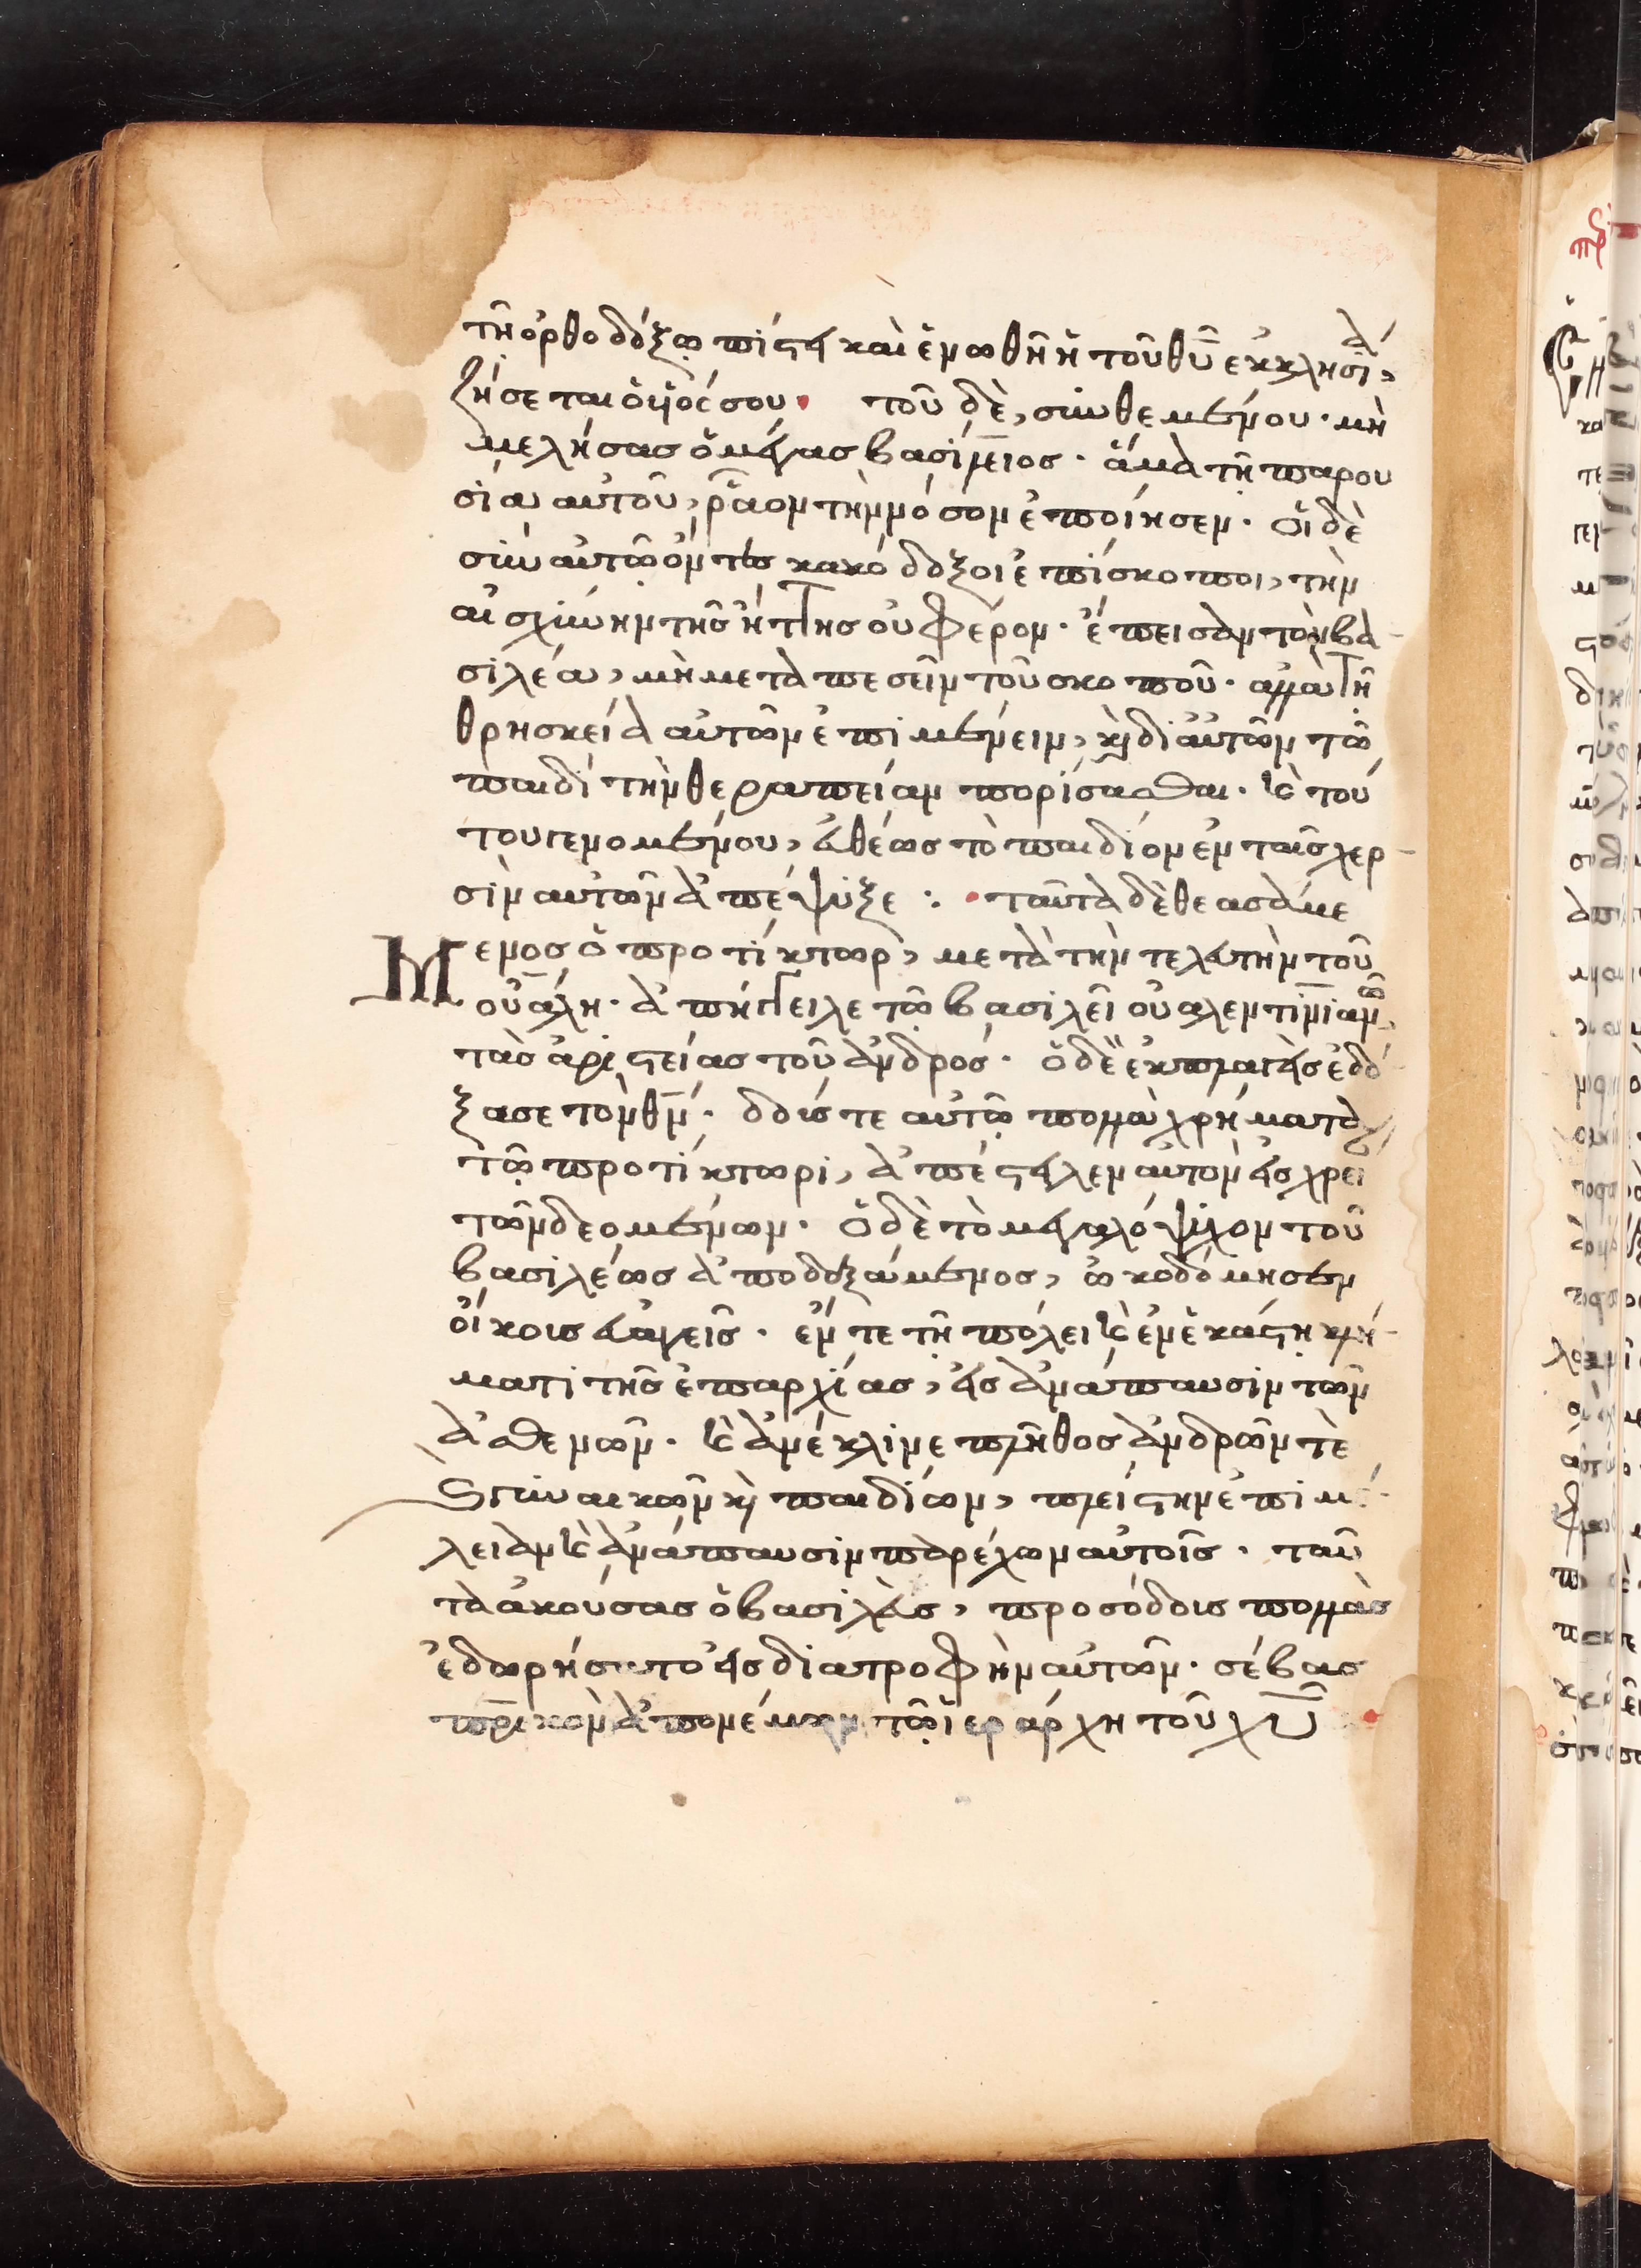 τῆ ὀρθοδόξω πίστει καὶ ἑνωθῆ ἡ τοῦ θῦ ἐκκλησία,
ζήσεται ὁ ὑϊός σου. τοῦ δὲ, συνθεμένου. μὴ
μελήσας ὁ μέγας βασίλειος. ἅμα τῆ παρου
σία αὐτοῦ, ῥᾶον τὴν νόσον ἐποίησεν. οἱ δὲ
σὺν αὐτῶ ὄντες κακόδοξοι ἐπίσκοποι, τὴν
αἰσχύνην τῆς ἥττης οὐ φέρον. ἔπεισαν τὸν βα
σιλέα, μὴ μεταπεσεῖν τοῦ σκοποῦ. ἀλλὰ τῆ
θρησκεία αὐτῶν ἐπιμένειν, κὴ δι αὐτῶν τῶ
παιδὶ τὴν θεραπείαν πορίσασθαι. κὲ τού
του γενομένου, εὐθέως τὸ παιδίον ἐν ταῖς χερ
σὶν αὐτῶν ἀπέψυξε : . ταῦτα δὲ θεασάμε
Μενος ὁ προτίκτωρ, μετὰ τὴν τελευτὴν τοῦ
οὐάλη. ἀπήγγειλε τῶ βασιλεῖ οὐαλεντινιανῶ
τὰς ἀριστείας τοῦ ἀνδρός. ὁ δὲ ἐκπλαγεὶς ἐδό
ξασε τὸν θν. δούς τε αὐτῶ πολλὰ χρήματα
τῶ προτίκτωρι, ἀπέστειλεν αὐτὸν εἰς χρεί
τῶν δεομένων. ὁ δὲ τὸ μεγαλόψυχον τοῦ
βασιλέως ἀποδοξάμενος, ὠκοδόμησεν
οἴκοις εὐαγεῖς. ἔν τε τῆ πόλει κὲ ἐν ἑκάστη κλή
ματι τῆς ἐπαρχίας, εἰς ἀνάπαυσιν τῶν
ἀσθενῶν. κὲ ἀνέκλινε πλῆθος ἀνδρῶν τὲ
γυναικῶν κὴ παιδίων, πλείστην ἐπιμέ
λειαν κὲ ἀνάπαυσιν παρέχων αὐτοῖς. ταῦ
τα ἀκούσας ὁ βασιλεὺς, προσόδοις πολλὰς
ἐδωρήσατο εἰς διατροφὴν αὐτῶν. σέβας
πρικὸν ἀπονέμων τῶ ἱεράρχη τοῦ χῦ